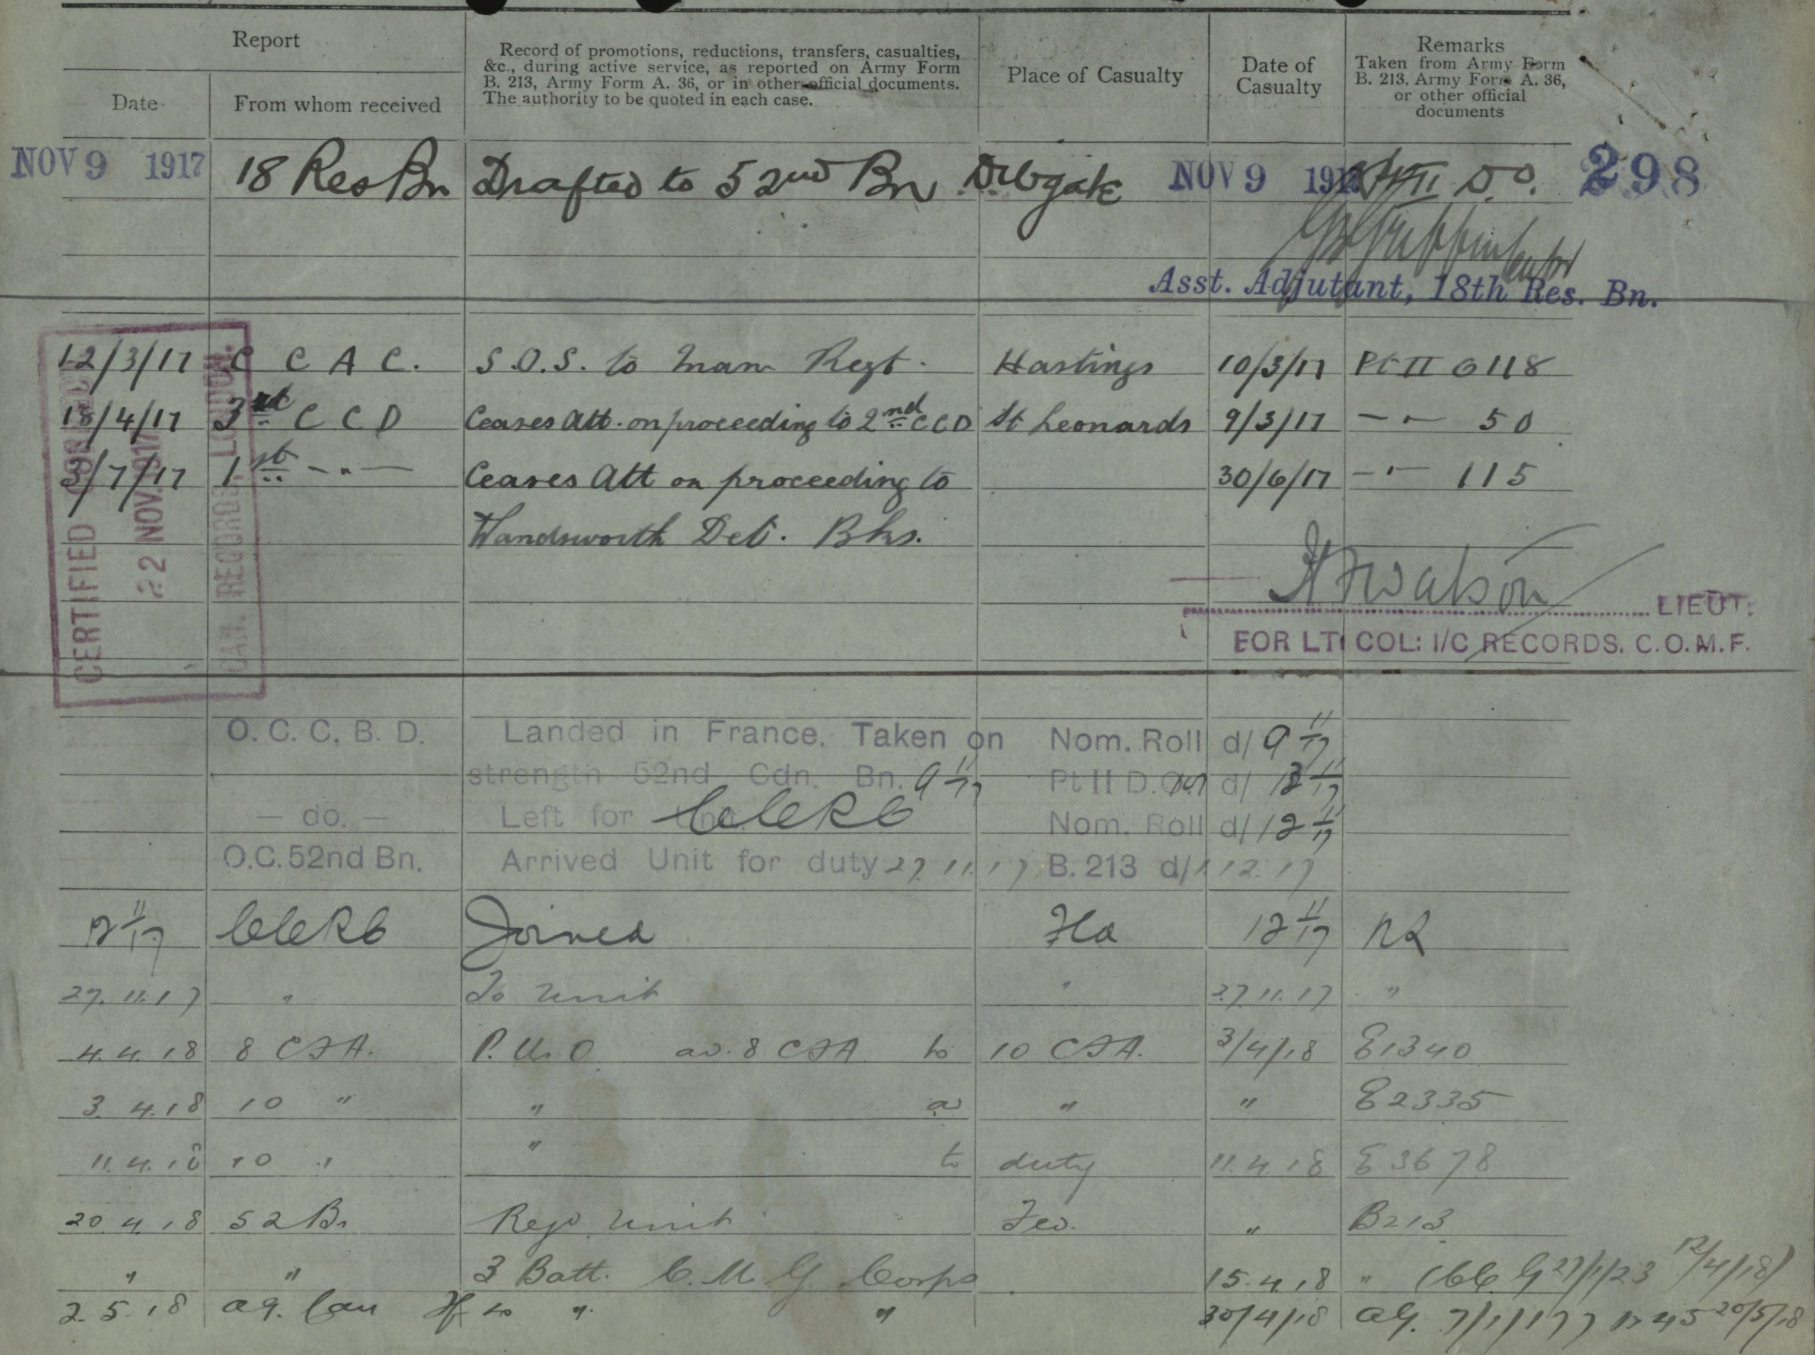 Report
Record of promotions, reductions, transfers, casualties,
&c., during active service, as reported on Army Form
B. 213, Army Form A. 36, or in other official documents.
The authority to be quoted in each case.
Place of Casualty
Date of
Casualty
Remarks
Taken from Army Form
B. 213, Army Form A. 36,
or other official
documents
Date
From whom received
NOV 9 1917 18 Res Bn Drafted to 52nd Bn Dibgate NOV 9 191 Pt II D.O. 298
Asst. Adjutant, 18th Res. Bn.
12/3/17 C C A C. S.O.S. to Man Regt. Hastings 10/3/17 Pt II O 118
18/4/17 3rd C C D Ceases Att. on proceeding to 2nd CCD St Leonards 9/3/17 — " — 50
3/7/17 1st — " — Ceases Att on proceeding to 30/6/17 — " — 115
Wandsworth Det. Bks.
CERTIFIED
22 NOV 1917
CAN. RECORDS, LONDON.
Watson LIEUT:
FOR LT COL: I/C RECORDS. C.O.M.F.
O. C. C. B. D. Landed in France. Taken on Nom. Roll d/ 9 11/17
strength 52nd Cdn. Bn. 9 11/17 Pt II D. d/ 11/17
— do. — Left for CCRC Nom. Roll d/ 12 11/17
O.C. 52nd Bn. Arrived Unit for duty 27.11.17 B. 213 d/ 1.12.17
12 11/17 CCRC Joined Fld 12 11/17 NR
27.11.17 " To Unit " 27.11.17 "
4.4.18 8 CFA. P.U.O ad. 8 CFA to 10 CFA. 3/4/18 E1340
3.4.18 10 " " a " " E2335
11.4.18 10 " " to duty 11.4.18 E3678
20 4.18 52 Bn Rejd Unit Fld. " B213
" " 3 Batt. C. M. G. Corps 15.4.18 " 12/4/18)
2.5.18 a.g. Can to " " 30/4/18 AG. 20/5/18